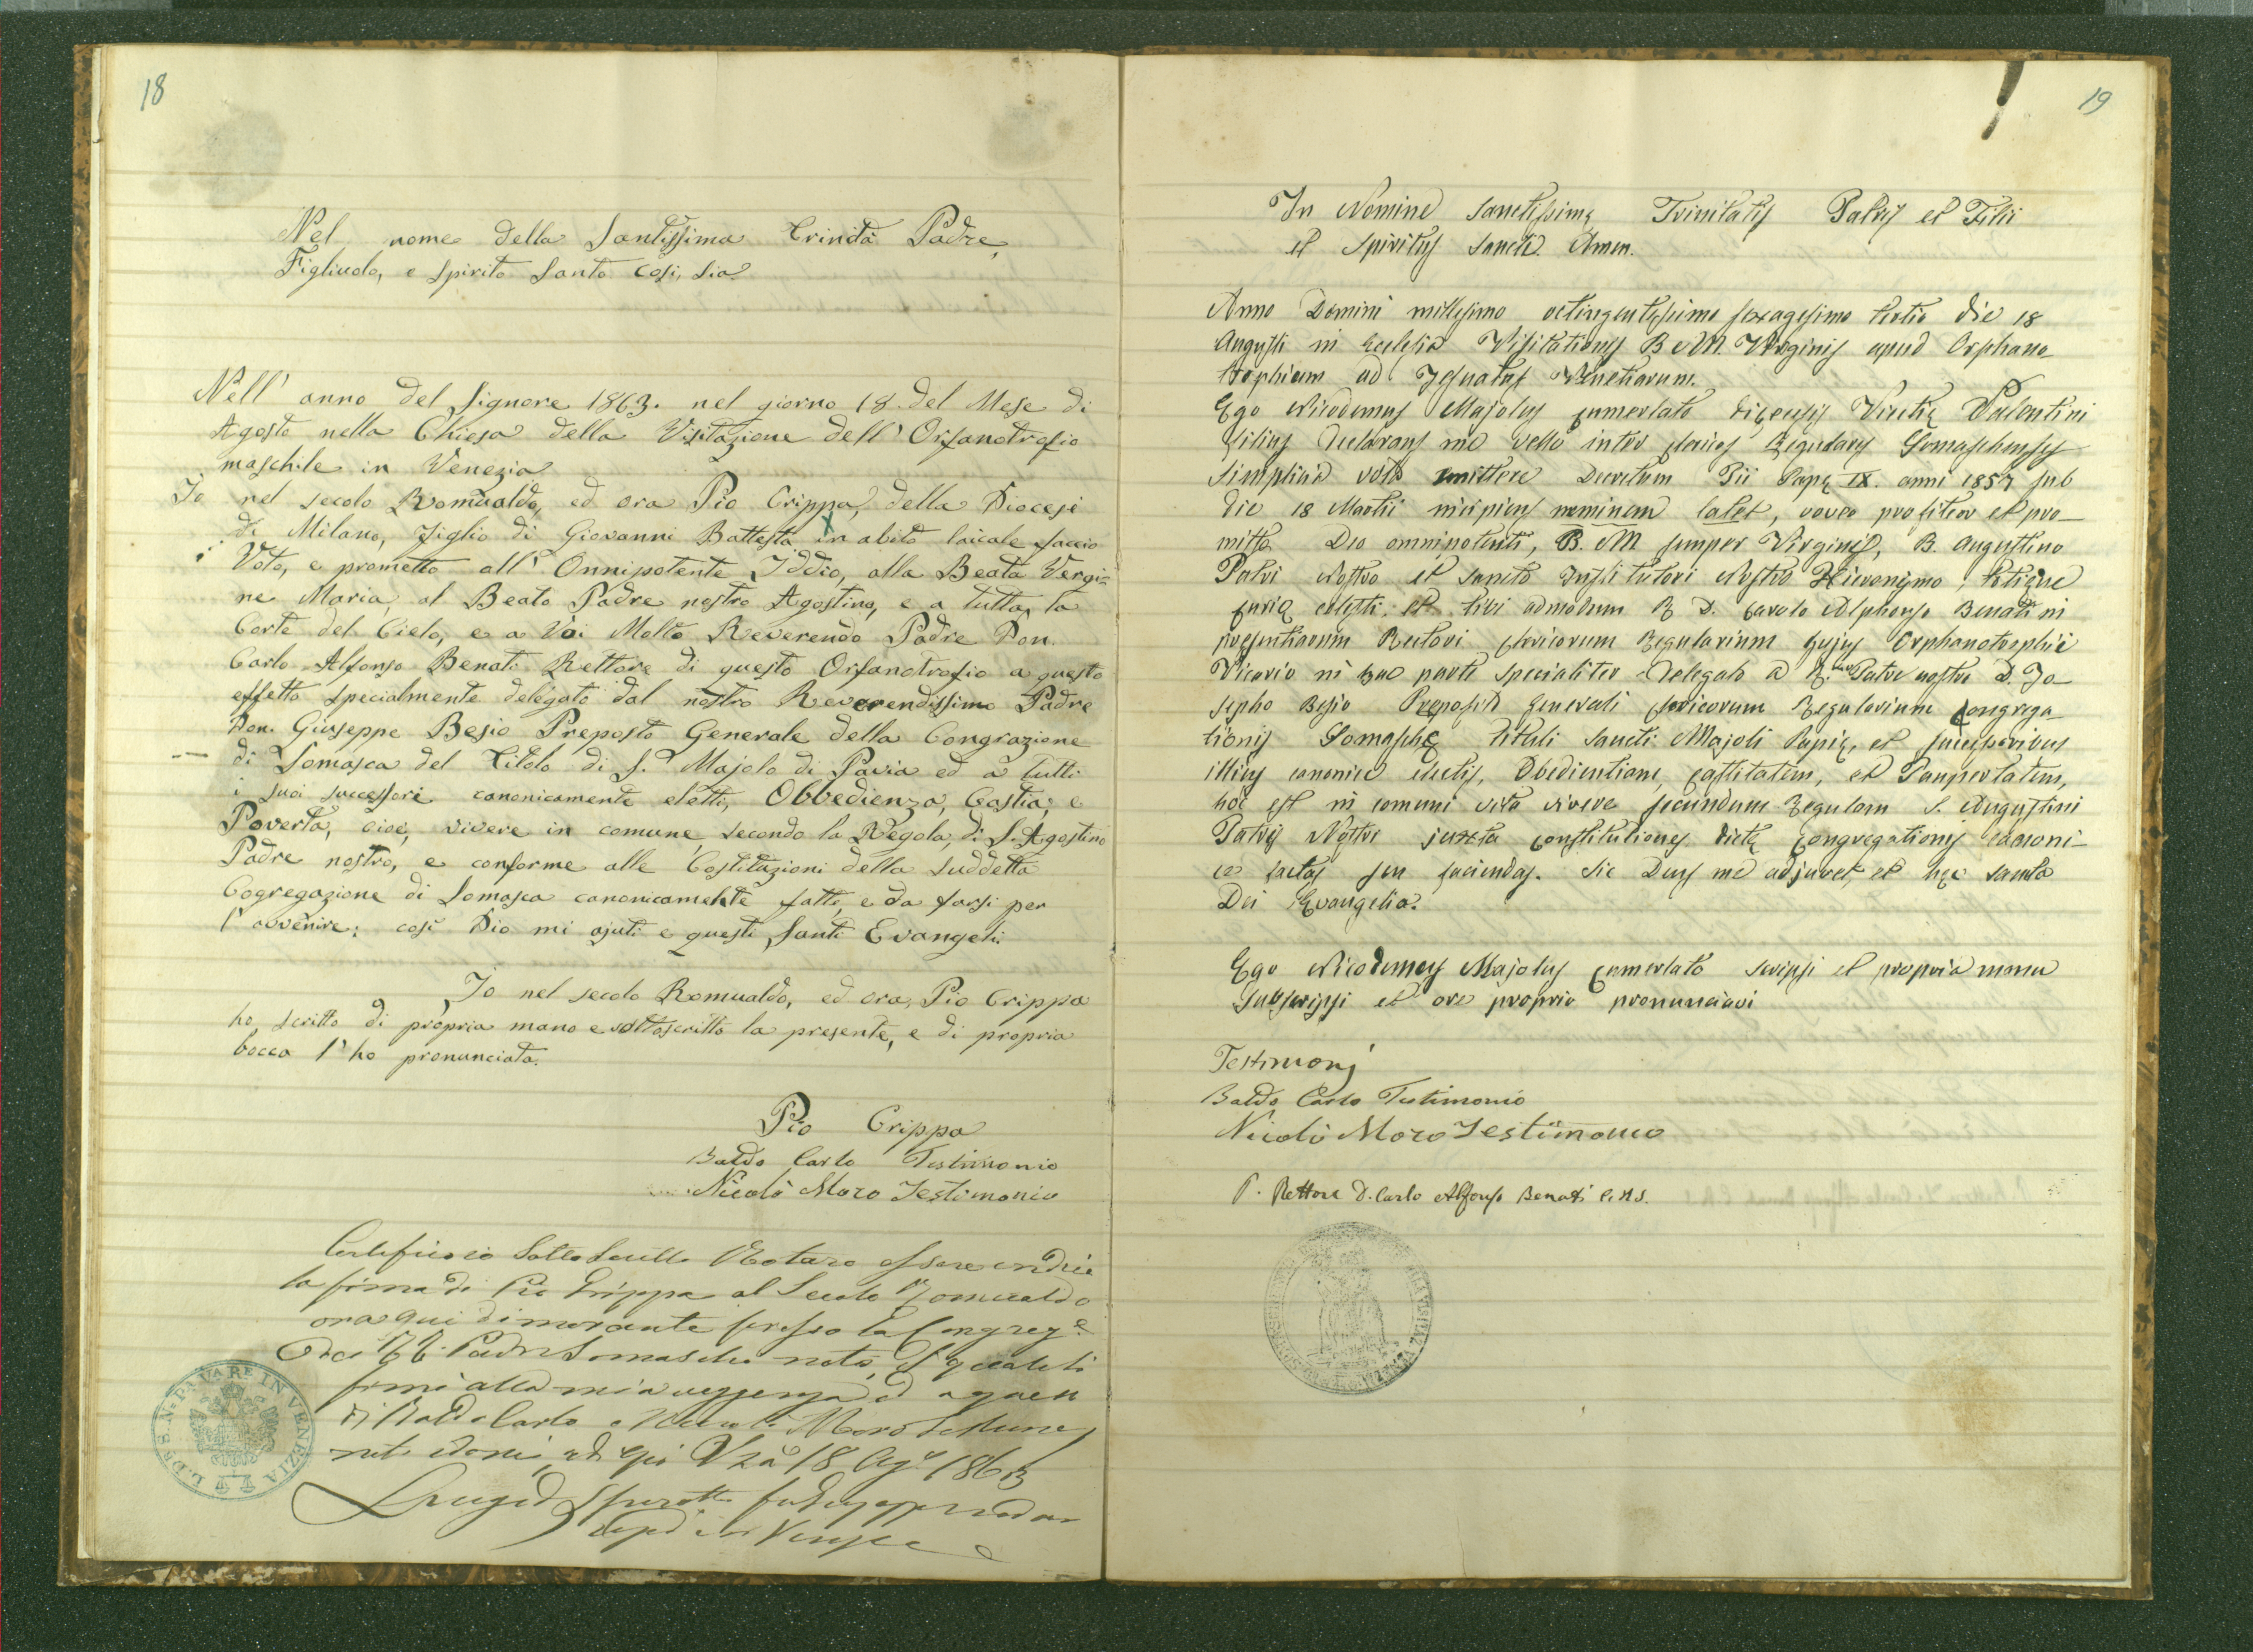 18
Nel nome della Santissima Trinità Padre,
Figliuolo, e Spirito Santo così, sia
Nell' anno del Signore 1863. nel giorno 18. del Mese di
Agosto nella Chiesa della Visitazione dell' Orfanotrofio
maschile in Venezia
Io nel secolo Romualdo, ed ora Pio Crippa, della Diocesi
di Milano, Figlio di Giovanni Battista in abito laicale faccio
Voto, e prometto all' Onnipotente Iddio, alla Beata Vergi=
ne Maria, al Beato Padre nostro Agostino, e a tutta la
Corte del Cielo, e a Voi Molto Reverendo Padre Don.
Carlo Alfonso Benati Rettore di questo Orfanotrofio a questo
effetto specialmente delegato dal nostro Reverendissimo Padre
Don. Giuseppe Besio Preposto Generale della Congrazione
di Somasca del Titolo di S. Majolo di Pavia ed a tutti
i suoi successori canonicamente eletti, Obbedienza, Castià, e
Povertà, cioè, vivere in comune secondo la Regola, di S. Agostino
Padre nostro, e conforme alle Costituzioni della suddetta
Cogregazione di Somasca canonicamente fatte, e da farsi per
l' avvenire: così Dio mi ajuti e questi Santi Evangeli.
Io nel secolo Romualdo, ed ora, Pio Crippa
ho scritto di propria mano e sottoscritto la presente, e di propria
bocca l' ho pronunciata.
Pio Crippa
Baldo Carlo Testimonio
Nicolò Moro Testimonio
Certifico io Sottoscritto Notaro essere
la firma di Pio Crippa al Secolo Romualdo
ora qui dimorante presso la Congreg.e
dei Padri Somaschi
firmò alla mia ed a
di Baldo Carlo e Nicolò Moro
18 1863
IN VENEZIA
19
In Nomine Sanctissimę Trinitatis Patris et Filii
et Spiritus Sancti. Amen.
Anno Domini millesimo octingentesimo sexagesimo tertio die 18
Augusti in Ecclesia Visitationis B M. Virginis apud Orphano
trophium ad Jesuatas Venetiarum.
Ego Nicodemus Majolus Camerlato Dięcesis Venetię Valentini
filius declarans me velle inter clericos Regulares Somaschenses
simplicia vota emittere Decretum Pii Papę IX. anni 1857 sub
die 18 Martii incipiens neminem latet, voveo profiteor et pro-
mitto Deo omnipotenti, B. M semper Virginis, B. Augustino
Patri Nostro et Sancto Institutori Nostro Hieronymo, totique
curię celesti, et tibi admodum R. D. Carolo Alphonso Benati in
presentiarum Rectori clericorum Regularium hujus Orphanotrophii
Vicario in hac parte specialiter Delegato a R.mo Patre nostro D. Jo-
sepho Besio Preposito Generali clericorum Regularium Congrega
tionis Somaschę tituli Sancti Majoli Papię, et successoribus
illius canonice electis, Obedientiam, castitatem, et Paupertatem,
hoc est in comuni vita vivere secundum Regulam S. Augustini
Patris Nostri juxta constitutiones dictę congregationis canoni-
ce factas seu faciendas. Sic Deus me adjuvet, et hęc santa
Dei Evangelia.
Ego Nicodemus Majolus Camerlato scripsi et propria manu
subscripsi et ore proprio pronunciavi
Testimonj
Baldo Carlo Testimonio
Nicolò Moro Testimonio
P. Rettore D. Carlo Alfonso Benati C.R.S.